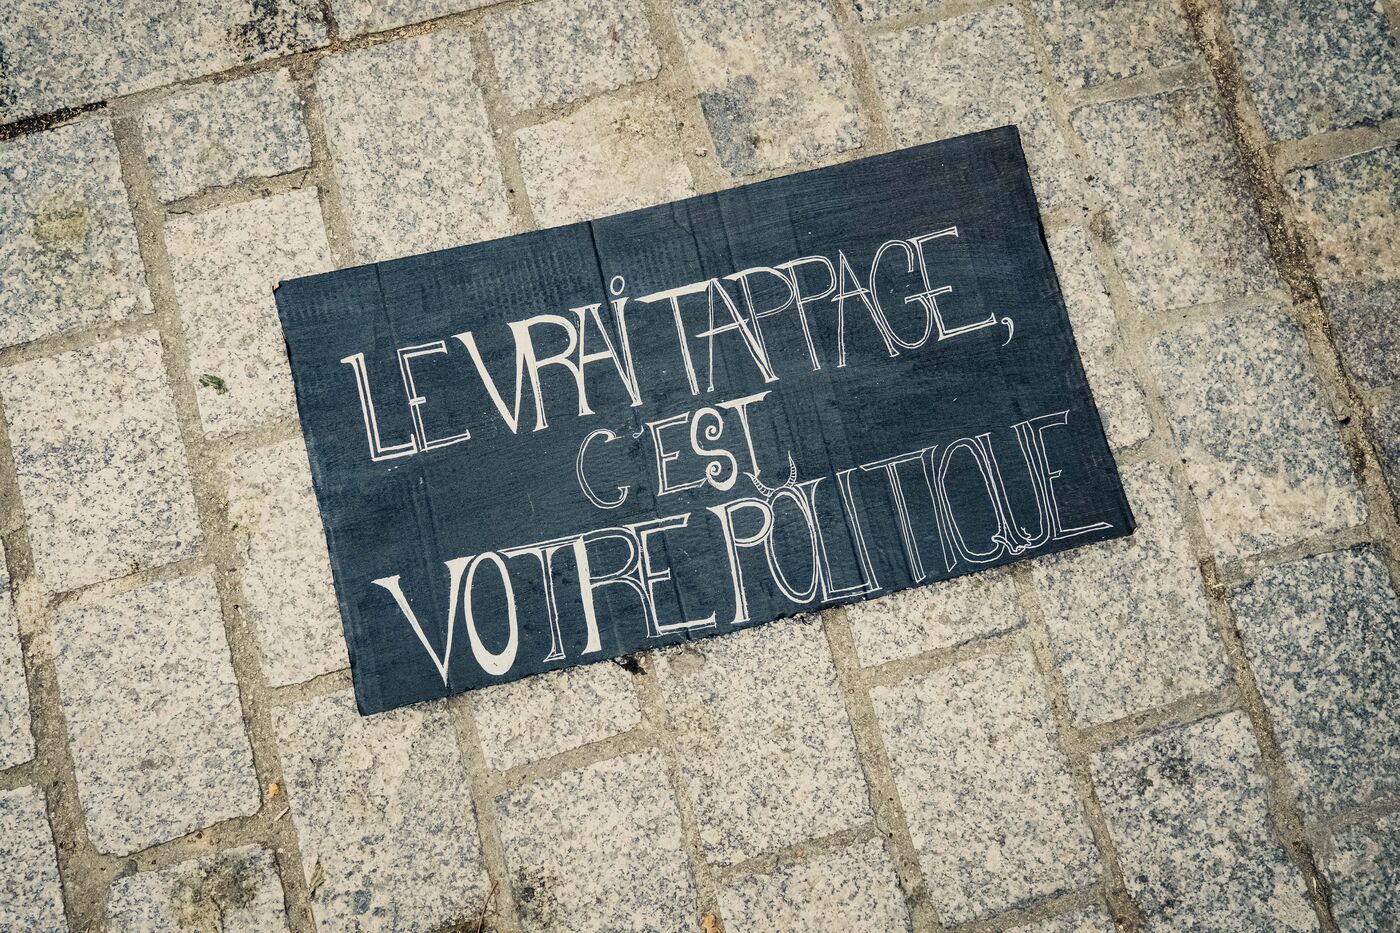 LE VRAi TAPPAGE,
C'EST
VOTRE POLITIQUE